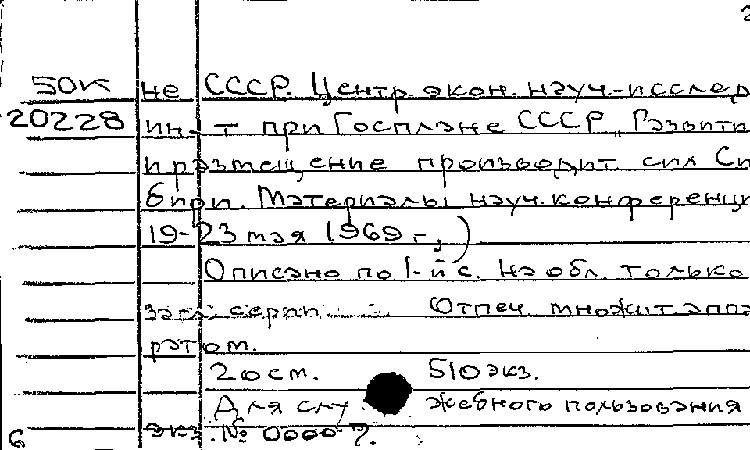 50К не СССР. Центр экон. науч.-исслед
20228 ин-т при Госплане СССР. Развити
и размещение производит сил Си
бири. Материалы науч. конференци
19-23 мая 1969 г.)
Описано по 1-й с. На обл. только
загл серии Отпеч. множит аппа
ратом.
20 см. 510 экз.
Для служебного пользования
6 экз. № 00007.